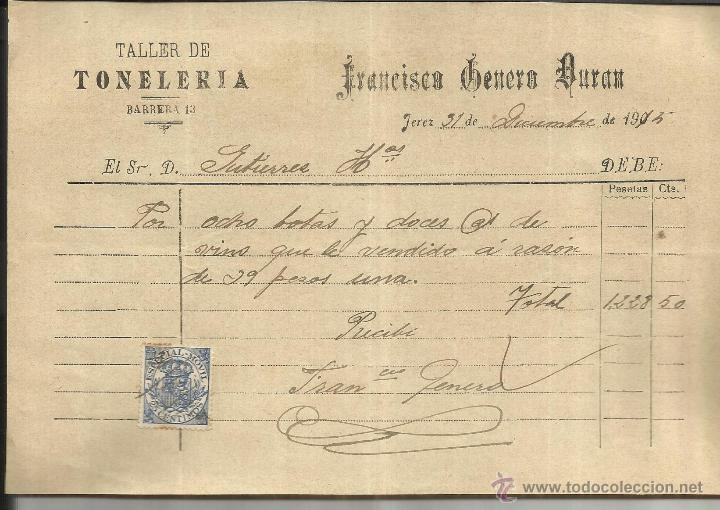 TALLER DE
TONELERIA
BARRERA 13
Francisco Genero Duran
Jerez 31 de Diciembre de 1915
El Sr. D. Gutierres Hos DEBE:
Pesetas Cts.
Por ocho botas y doces @ de
vino que le vendido á rasón
de 39 pesos una.
Total 1.228 50
Recibi
Franco Genero
ESPECIAL MÓVIL
CENTIMOS
www.todocoleccion.net